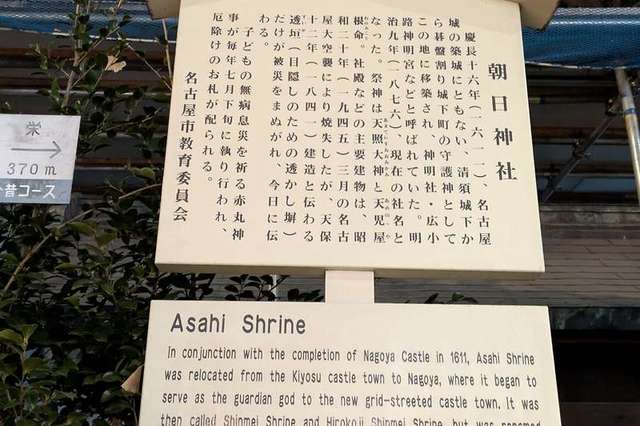 朝日神社
慶長十六年（一六一一）、名古屋
城の築城にともない、清須城下か
ら碁盤割り城下町の守護神として
この地に移築され、神明社・広小
路神明宮などと呼ばれていた。明
治九年（一八七六）、現在の社名と
なった。祭神は天照大神と天児屋
根命。社殿などの主要建物は、昭
和二十年（一九四五）三月の名古
屋大空襲により焼失したが、天保
十二年（一八四一）建造と伝わる
透垣（目隠しのための透かし塀）
だけが被災をまぬがれ、今日に伝
わる。
子どもの無病息災を祈る赤丸神
事が毎年七月下旬に執り行われ、
厄除けのお札が配られる。
名古屋市教育委員会
栄
370 m
昔コース
Asahi Shrine
In conjunction with the completion of Nagoya Castle in 1611, Asahi Shrine
was relocated from the Kiyosu castle town to Nagoya, where it began to
serve as the guardian god to the new grid-streeted castle town. It was
then called Shinmei Shrine and Hirokoji Shinmei Shrine, but was renamed